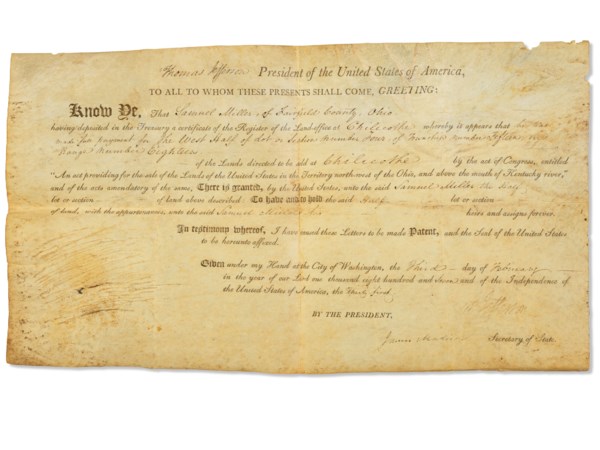 Thomas Jefferson President of the United States of America,
TO ALL TO WHOM THESE PRESENTS SHALL COME, GREETING:
Know Ye, That Samuel Miller of Fairfield County, Ohio
having deposited in the Treasury a certificate of the Register of the Land-office at Chilicothe whereby it appears that
made full payment for the West Half of Lot or Section Number Four of Township Number Fifteen
Range Number Eighteen
of the Lands directed to be sold at Chilicothe by the act of Congress, entitled
"An act providing for the sale of the Lands of the United States in the Territory north-west of the Ohio, and above the mouth of Kentucky river,"
and of the acts amendatory of the same, There is granted, by the United States, unto the said Samuel Miller the Half
lot or section of land above described: To have and to hold the said Half lot or section
of land, with the appurtenances, unto the said Samuel Miller his heirs and assigns forever.
In testimony whereof, I have caused these Letters to be made Patent, and the Seal of the United States
to be hereunto affixed.
Given under my Hand at the City of Washington, the Third day of February
in the year of our Lord one thousand eight hundred and Seven and of the Independence of
the United States of America, the Thirty first.
BY THE PRESIDENT.
James Madison Secretary of State